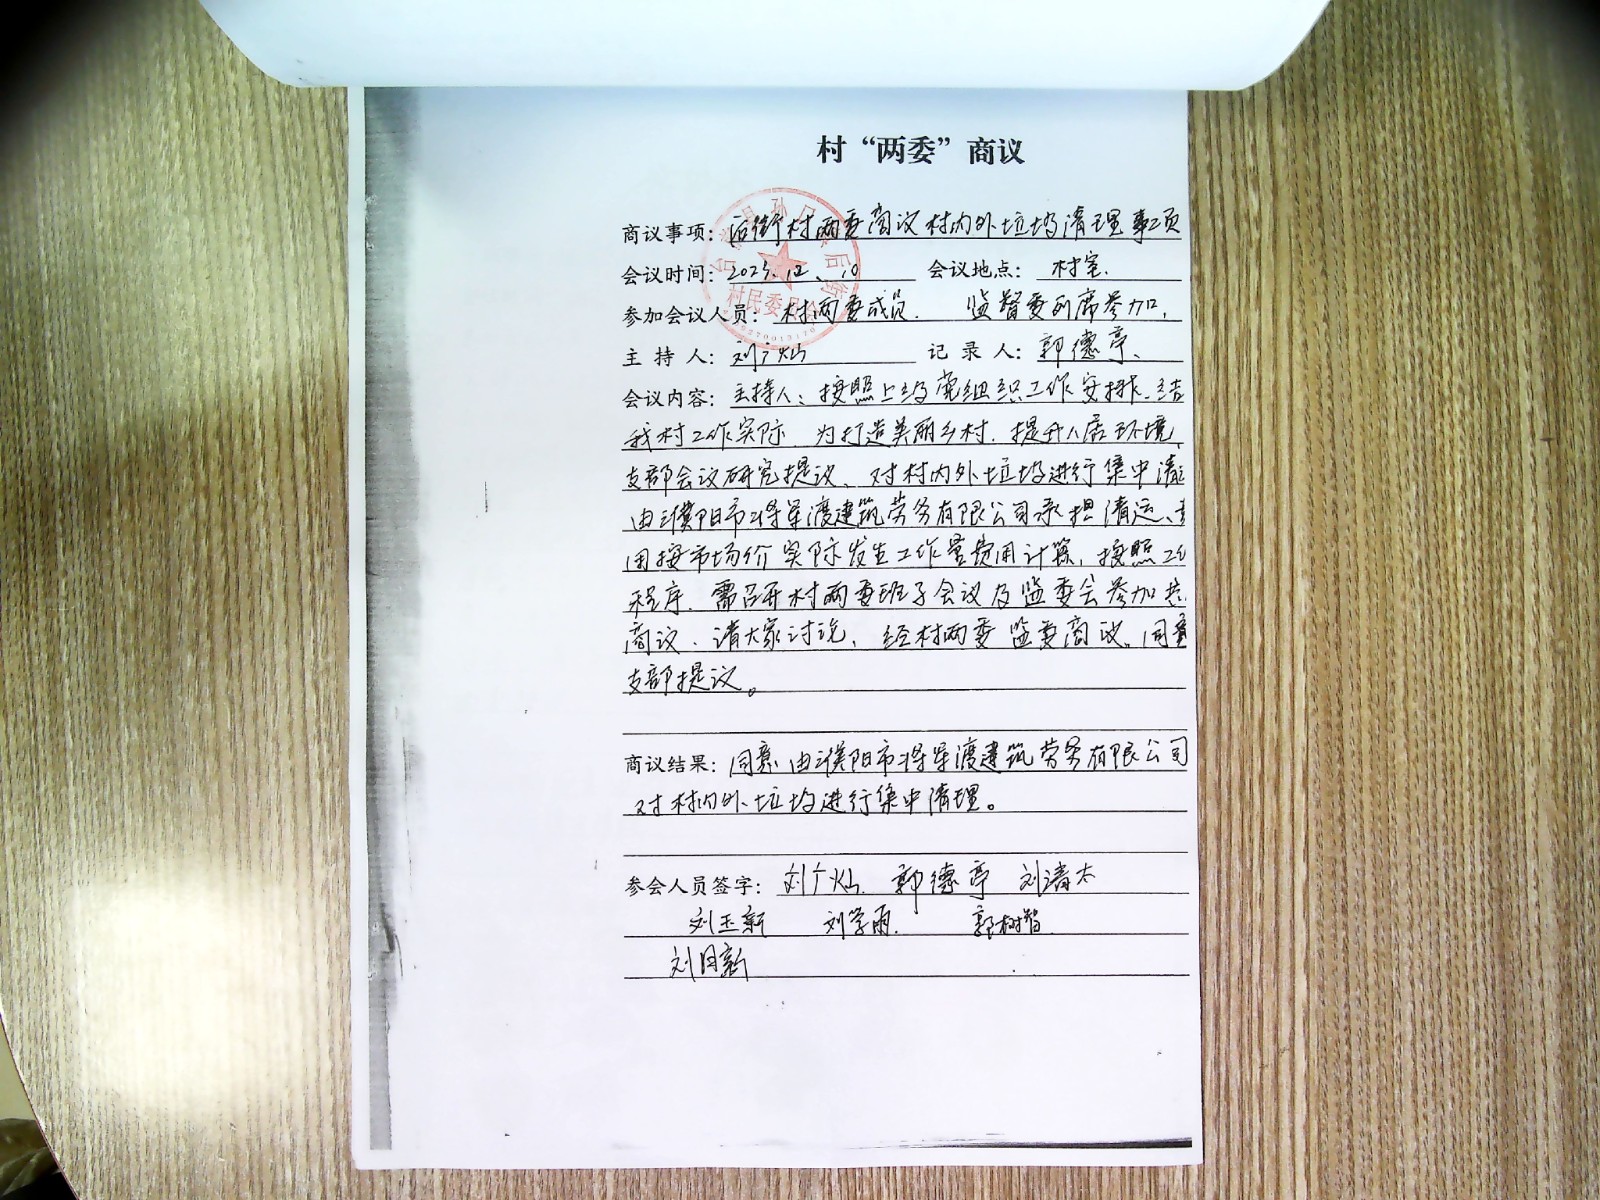 村“两委”商议
商议事项：后街村两委商议村内外垃圾清理事项
会议时间：2023.12.10 会议地点：村室.
参加会议人员：村两委成员. 监督委列席参加.
主 持 人：刘广灿 记 录 人：郭德亭、
会议内容：主持人：按照上级党组织工作安排、结
我村工作实际 为打造美丽乡村.提升人居环境、
支部会议研究提议、对村内外垃圾进行集中清
由濮阳市将军渡建筑劳务有限公司承担清运、
用按市场价实际发生工作量费用计算,按照工
程序.需召开村两委班子会议及监委会参加
商议.请大家讨论、经村两委监委商议.同意
支部提议。
商议结果：同意由濮阳市将军渡建筑劳务有限公司
对村内外垃圾进行集中清理。
参会人员签字：刘广灿. 郭德亭 刘清太
刘玉新 刘学雨. 郭树智
刘月新
村民委员会